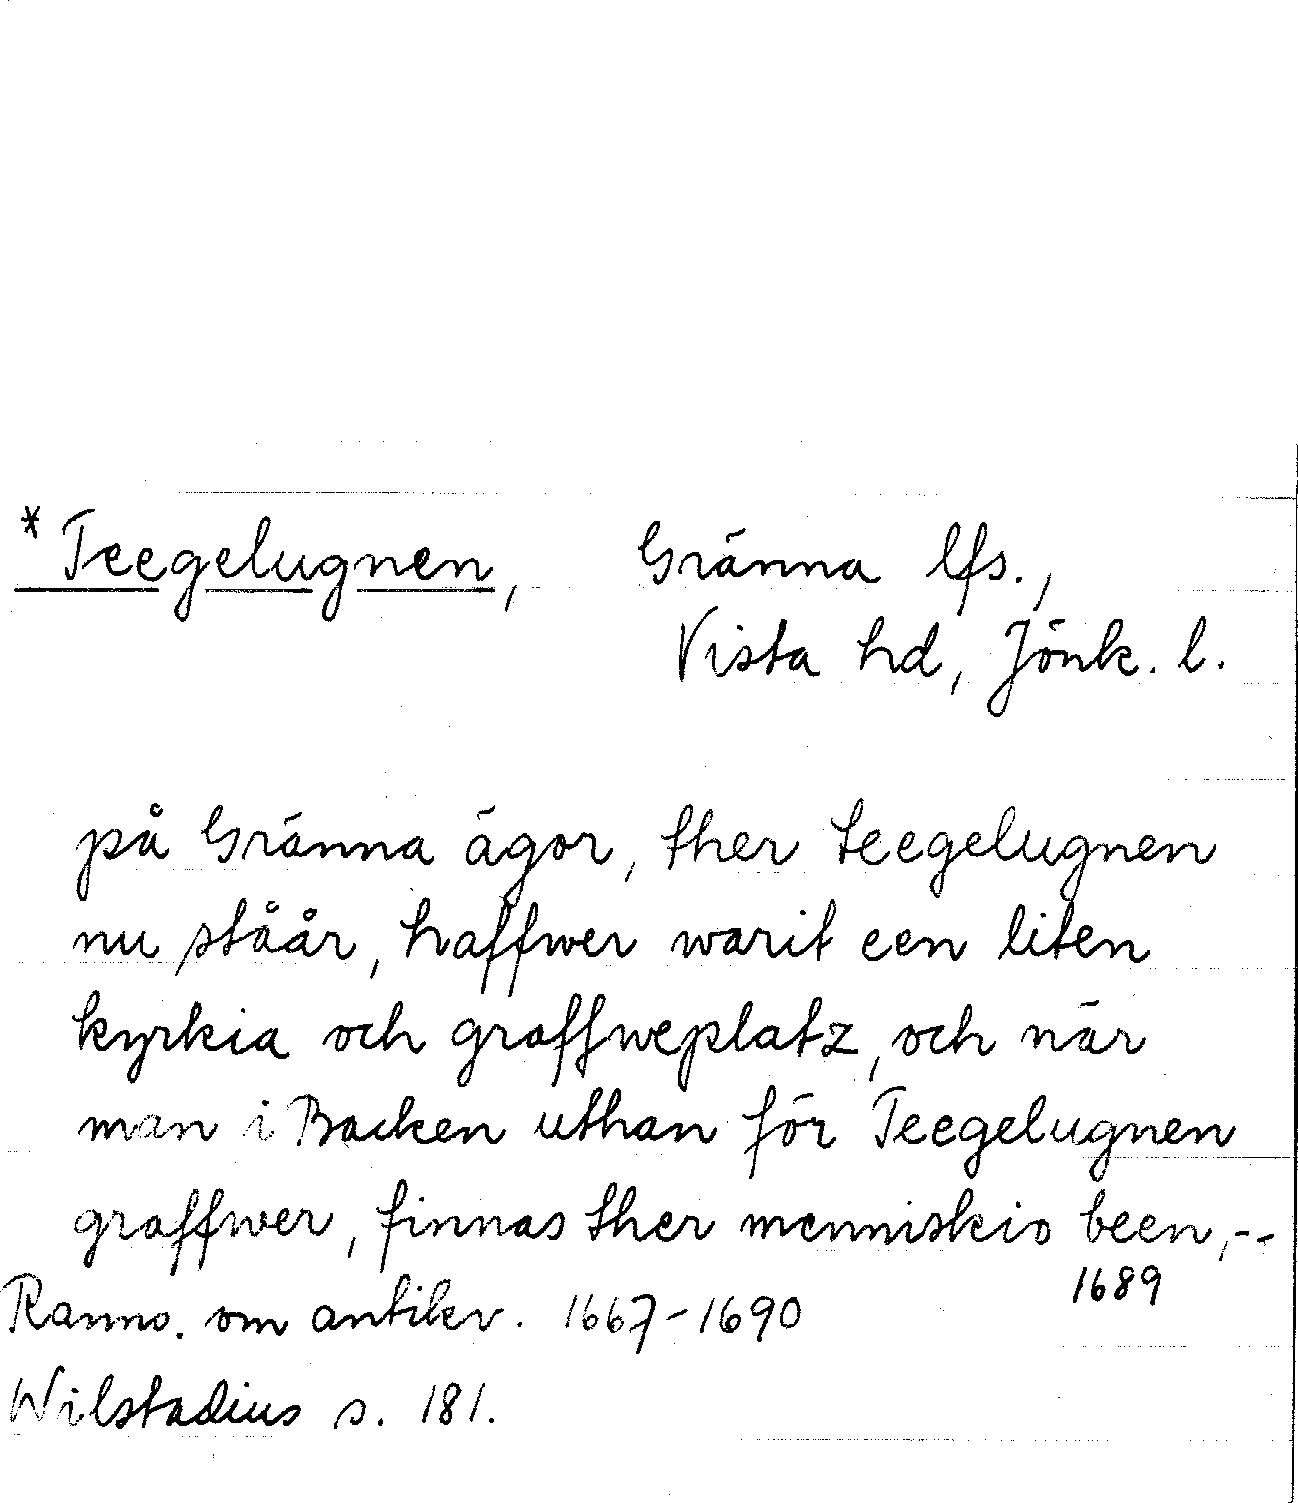 * Teegelugnen, Gränna lfs.,
Vista hd, Jönk. l.
på Gränna ägor, ther teegelugnen
nu ståår, haffwer warit een liten
kyrkia och graffweplatz, och när
man i Backen uthan för Teegelugnen
graffwer, finnas ther menniskio been,--
1689
Ranns. om antikv. 1667-1690
Wilstadius s. 181.